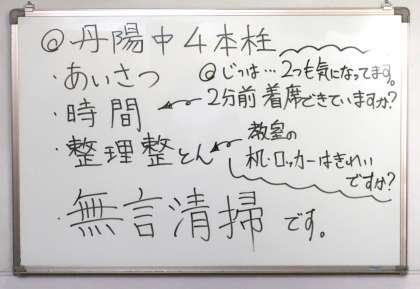 @丹陽中4本柱
・あいさつ
・時間
・整理整とん
・無言清掃です。
@じつは…2つも気になってます。
2分前着席できていますか?
教室の
机・ロッカーはきれい
ですか?